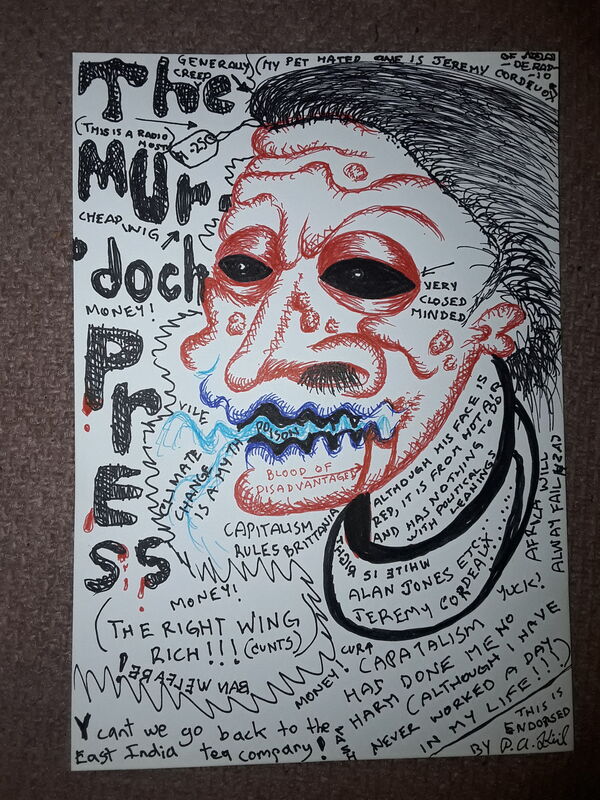 The
Mur-
doch
Press
GENERALLY
CREEP
(MY PET HATED ONE IS JEREMY CORDEUOX
OF
(THIS IS A RADIO
HOST)
-250
CHEAP WIG
MONEY!
VERY
CLOSED
MINDED
VILE
POISON
CLIMATE
CHANGE
IS A MYTH
BLOOD OF
DISADVANTAGED
ALTHOUGH HIS FACE IS
RED, IT IS FROM HOT AIR
AND HAS NOTHING TO DO
WITH POLITICAL
LEANINGS
CAPITALISM
RULES BRITTANIA
WHITE IS RICH
ALAN JONES ETC
JEREMY CORDEAUX......
AFRICA WILL
ALWAY FAIL
YUCK!
MONEY!
(THE RIGHT WING
RICH!!! (CUNTS)
BAN WELFARE!
MONEY!
CAPATALISM
HAS DONE ME NO
HARM (ALTHOUGH I HAVE
NEVER WORKED A DAY
IN MY LIFE!!!)
Y cant we go back to the
East India tea company!
CASH
THIS IS
ENDORSED
BY